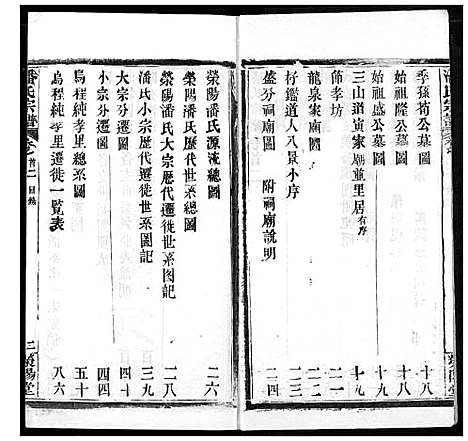 季孫荀公墓圖 十八
始祖隆公墓圖 十八
始祖盛公墓圖 十八
三山道演家廟重里居有序 十九
節孝坊 十九
龍泉家廟圖 二十
杍鑑道人八景小序 二二
盛分祠廟圖 附祠廟說明 二四
滎陽潘氏源流總圖 二六
滎陽潘氏歷代世系總圖
滎陽潘氏大宗歷代遷徙世系图記 二八
潘氏小宗歷代遷徙世系圖記 三九
大宗分遷圖 四十
小宗分遷圖 四四
烏程純孝里總系圖 五十
烏程純孝里遷徙一覽表 八六
潘氏宗譜 卷首二 目錄 二 滎陽堂